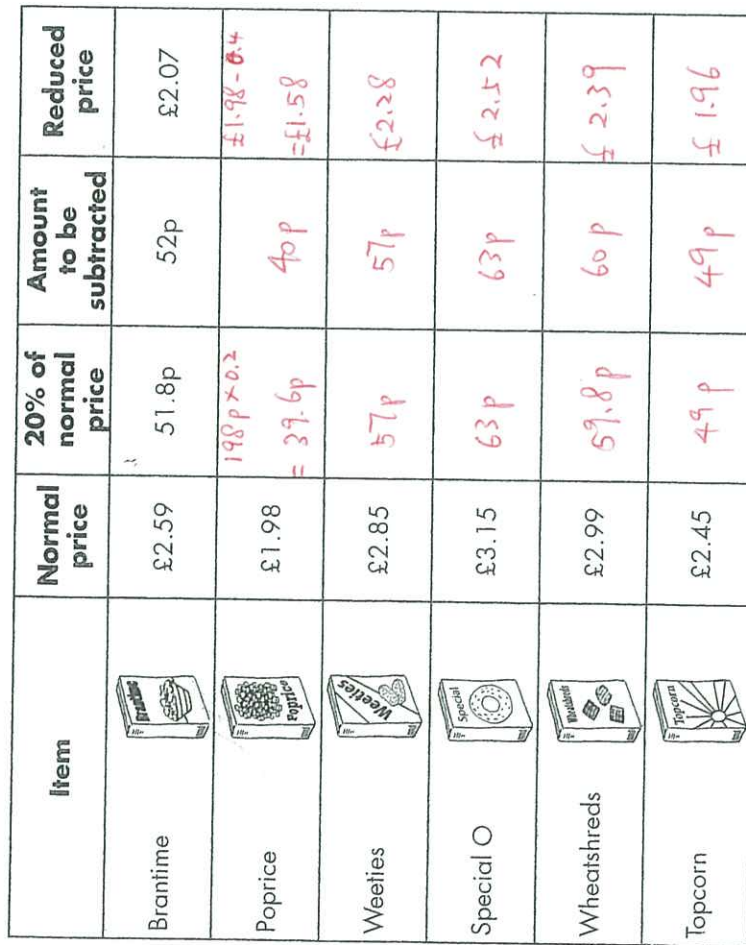 Item
Normal price
20% of normal price
Amount to be subtracted
Reduced price
Brantime
Brantime
£2.59
51.8p
52p
£2.07
Poprice
Poprice
£1.98
198p×0.2
= 39.6p
40p
£1.98-0.4
=£1.58
Weeties
Weeties
£2.85
57p
57p
£2.28
Special O
Special
£3.15
63p
63p
£2.52
Wheatshreds
Wheatshreds
£2.99
59.8p
60p
£2.39
Topcorn
Topcorn
£2.45
49p
49p
£1.96